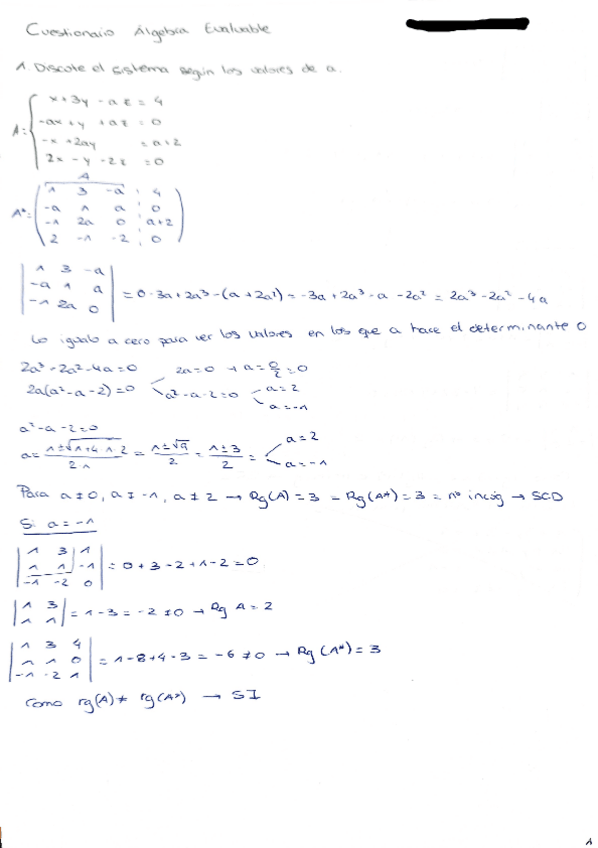 Cuestionario Álgebra Evaluable
1. Discute el sistema según los valores de a.
A: { x+3y - az = 4
-ax+y +az = 0
-x +2ay = a+2
2x - y -2z = 0
A
A* = ( 1 3 -a | 4
-a 1 a | 0
-1 2a 0 | a+2
2 -1 -2 | 0 )
| 1 3 -a |
| -a 1 a | = 0-3a+2a³-(a+2a²) = -3a+2a³-a-2a² = 2a³-2a²-4a
| -1 2a 0 |
Lo igualo a cero para ver los valores en los que a hace el determinante 0
2a³-2a²-4a=0 2a=0 → a=0/2=0
2a(a²-a-2)=0 a²-a-2=0 a=2
a=-1
a²-a-2=0
a= 1±√1+4·1·2 / 2·1 = 1±√9 / 2 = 1±3 / 2 = a=2
a=-1
Para a≠0, a≠-1, a≠2 → Rg(A)=3 = Rg(A*)=3 = nº incóg → SCD
Si a=-1
| 1 3 1 |
| 1 1 -1 | = 0+3-2+1-2=0
| -1 -2 0 |
| 1 3 |
| 1 1 | = 1-3=-2≠0 → Rg A=2
| 1 3 4 |
| 1 1 0 | = 1-8+4-3=-6≠0 → Rg(A*)=3
| -1 -2 1 |
Como rg(A)≠ rg(A*) → SI
1